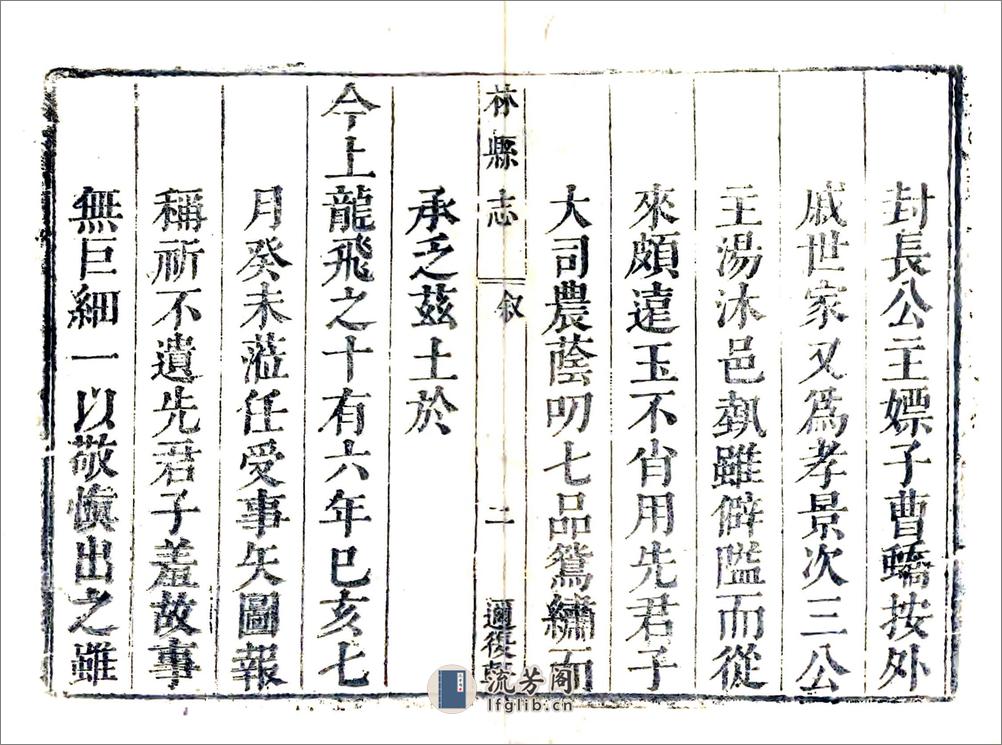 封長公主嫖子曹蟜按外
戚世家又爲孝景次三公
主湯沐邑埶雖僻隘而從
來頗遠玉不肖用先君子
大司農蔭叨七品鴛繡而
承乏茲土於
林縣志 叙 二
今上龍飛之十有六年巳亥七
月癸未蒞任受事矢圖報
稱祈不遺先君子羞故事
無巨細一以敬愼出之雖
流芳阁
lfglib.cn